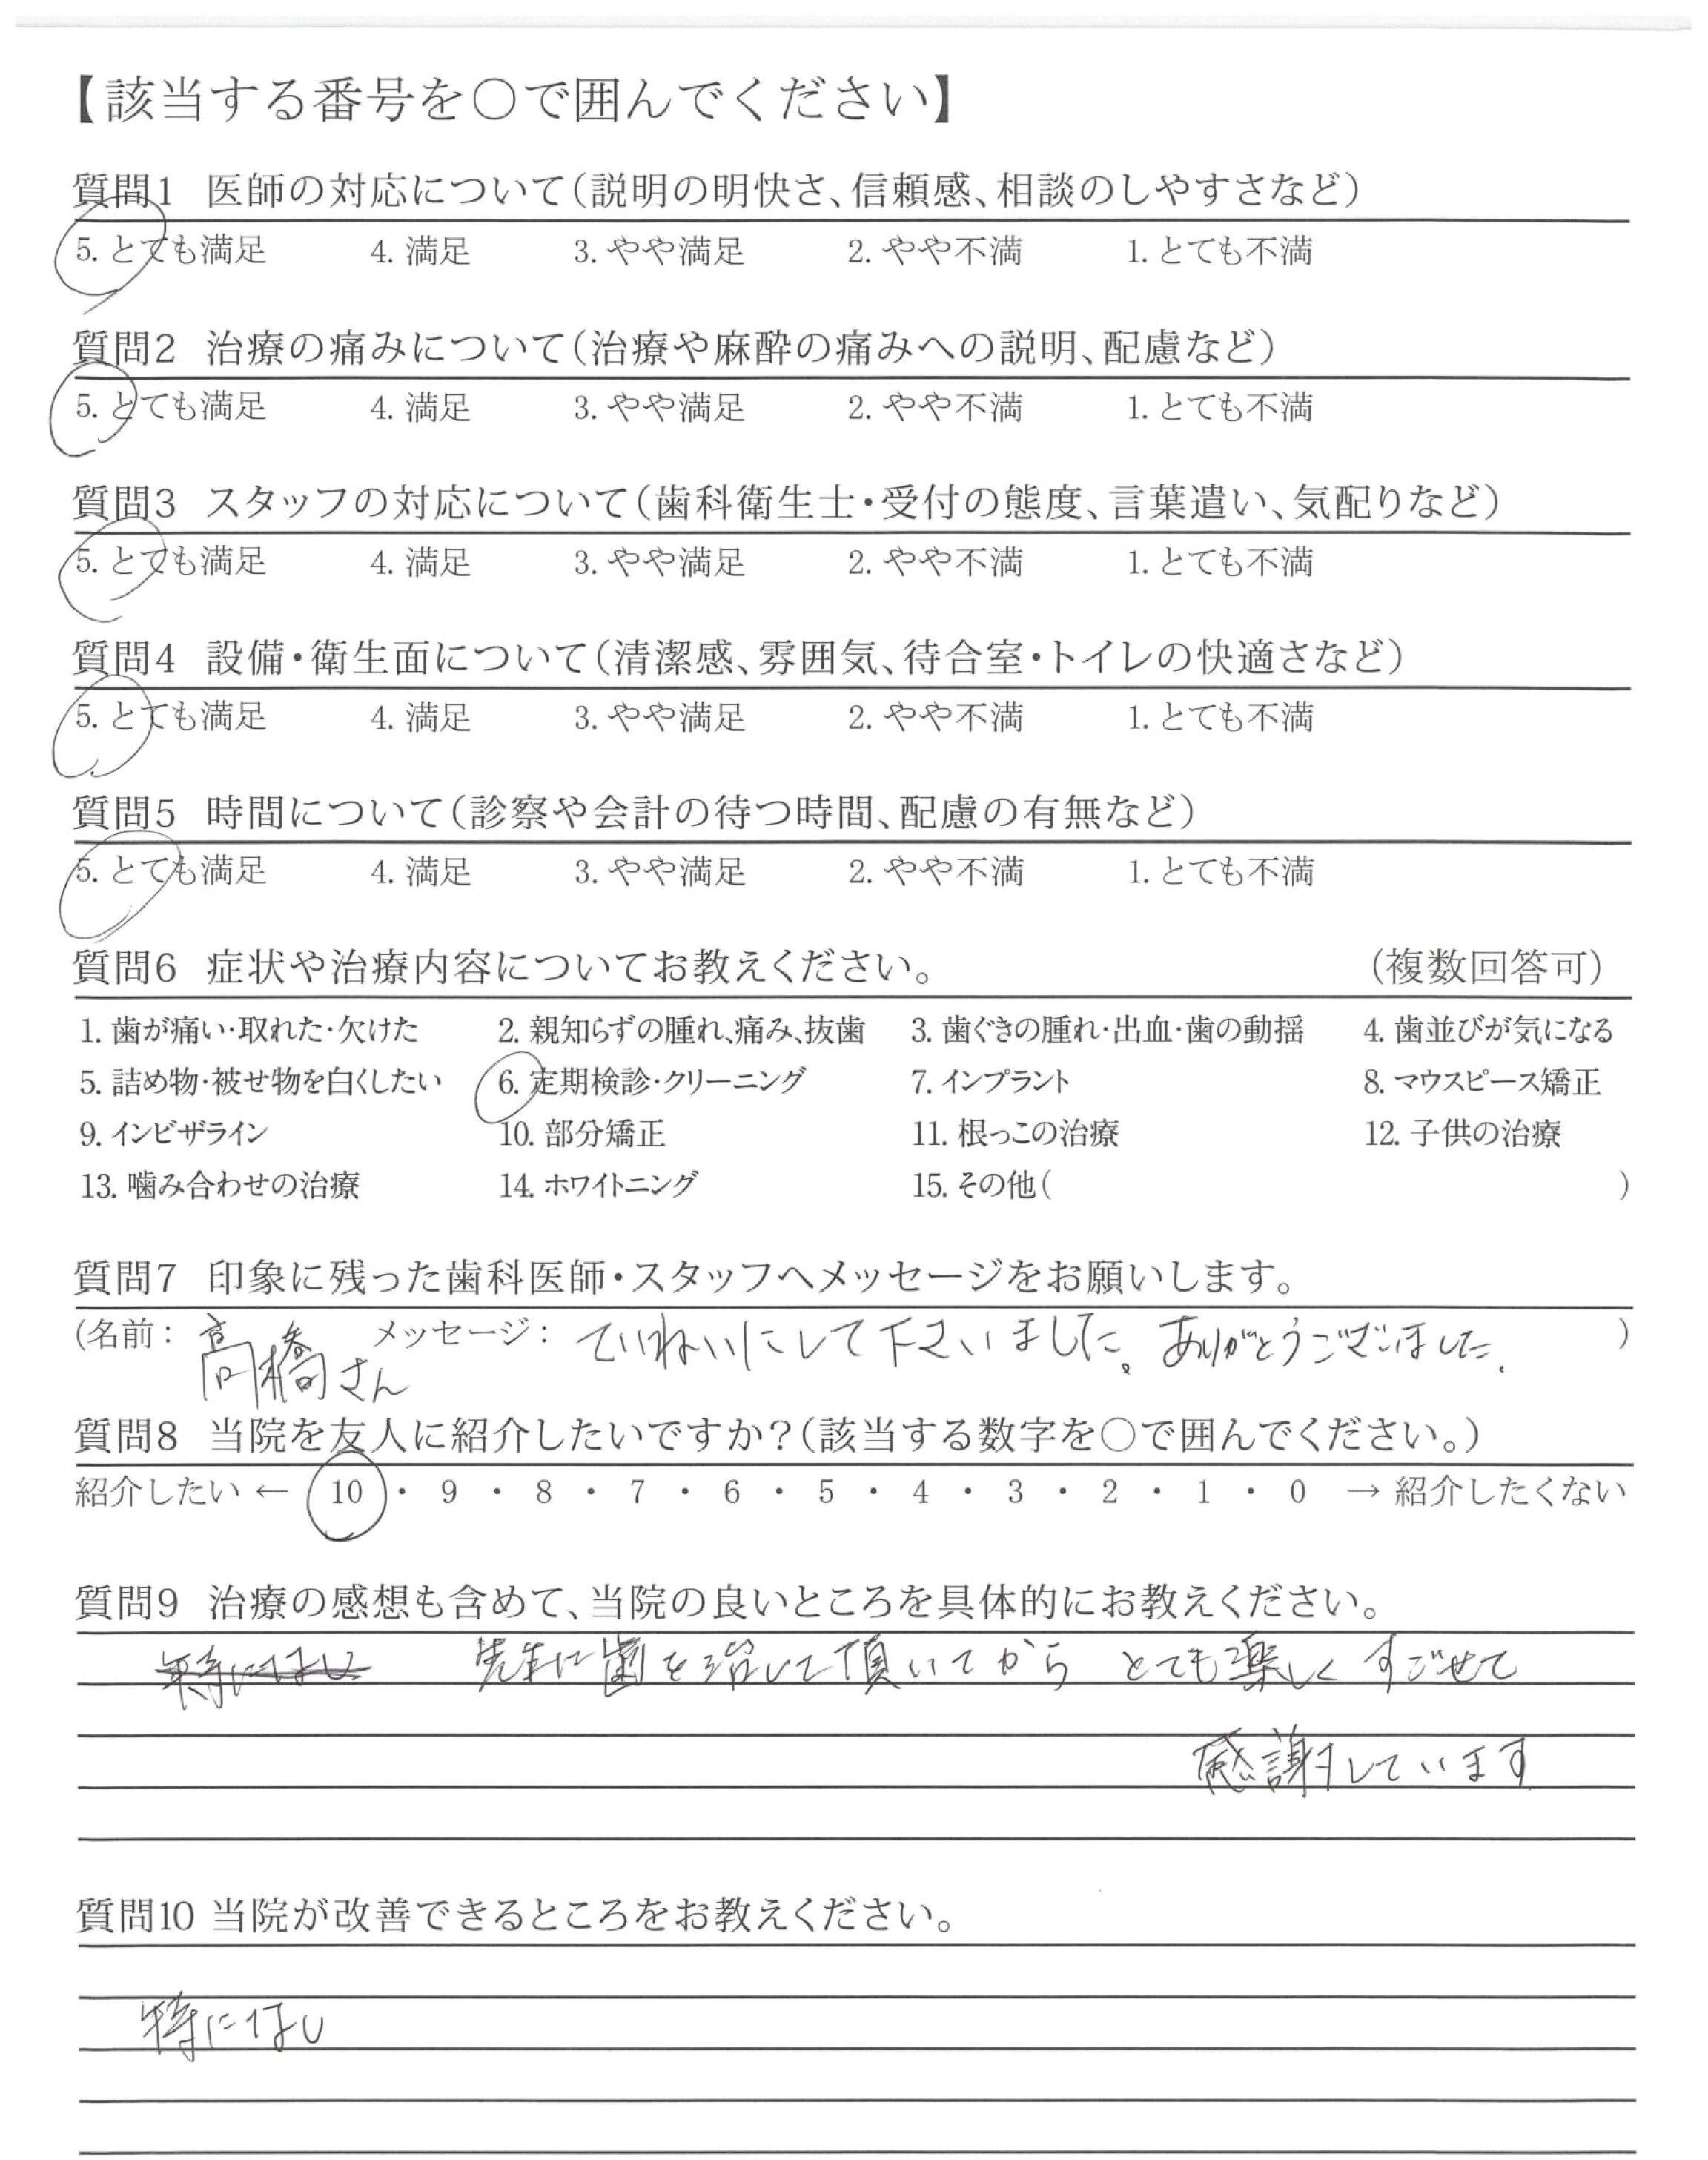 【該当する番号を〇で囲んでください】
質問1 医師の対応について(説明の明快さ、信頼感、相談のしやすさなど)
5. とても満足 4. 満足 3. やや満足 2. やや不満 1. とても不満
質問2 治療の痛みについて(治療や麻酔の痛みへの説明、配慮など)
5. とても満足 4. 満足 3. やや満足 2. やや不満 1. とても不満
質問3 スタッフの対応について(歯科衛生士・受付の態度、言葉遣い、気配りなど)
5. とても満足 4. 満足 3. やや満足 2. やや不満 1. とても不満
質問4 設備・衛生面について(清潔感、雰囲気、待合室・トイレの快適さなど)
5. とても満足 4. 満足 3. やや満足 2. やや不満 1. とても不満
質問5 時間について(診察や会計の待つ時間、配慮の有無など)
5. とても満足 4. 満足 3. やや満足 2. やや不満 1. とても不満
質問6 症状や治療内容についてお教えください。 (複数回答可)
1. 歯が痛い・取れた・欠けた 2. 親知らずの腫れ、痛み、抜歯 3. 歯ぐきの腫れ・出血・歯の動揺 4. 歯並びが気になる
5. 詰め物・被せ物を白くしたい 6. 定期検診・クリーニング 7. インプラント 8. マウスピース矯正
9. インビザライン 10. 部分矯正 11. 根っこの治療 12. 子供の治療
13. 噛み合わせの治療 14. ホワイトニング 15. その他( )
質問7 印象に残った歯科医師・スタッフへメッセージをお願いします。
(名前: 高橋さん メッセージ: ていねいにして下さいました。ありがとうございました。 )
質問8 当院を友人に紹介したいですか?(該当する数字を〇で囲んでください。)
紹介したい ← 10 ・ 9 ・ 8 ・ 7 ・ 6 ・ 5 ・ 4 ・ 3 ・ 2 ・ 1 ・ 0 → 紹介したくない
質問9 治療の感想も含めて、当院の良いところを具体的にお教えください。
特になし 先生に歯を治して頂いてから とても楽しく すごせて
感謝しています
質問10 当院が改善できるところをお教えください。
特になし